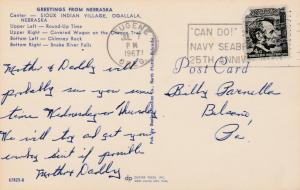 GREETINGS FROM NEBRASKA
Center — SIOUX INDIAN VILLAGE, OGALLALA,
NEBRASKA
Upper Left — Round-Up Time
Upper Right — Covered Wagon on the Oregon Trail
Bottom Left — Chimney Rock
Bottom Right — Snake River Falls
Mother & Daddy will
probably see you some
time Wednesday or Thursday
We will try and get your
cowboy suit if possible
Mother & Daddy
EUGENE
PM
1967
"CAN DO!"
NAVY SEABEES
25TH ANNIV
Post Card
Billy Farnella
Belsano
Pa.